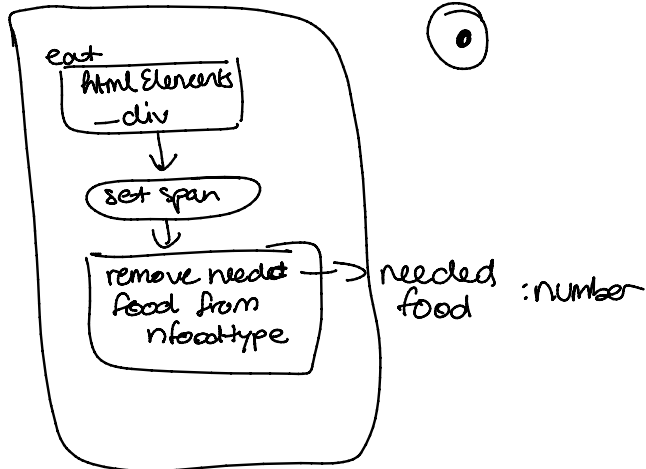 eat
html Elements
_div
set span
remove needed
food from
nfoodtype
needed
food
:number